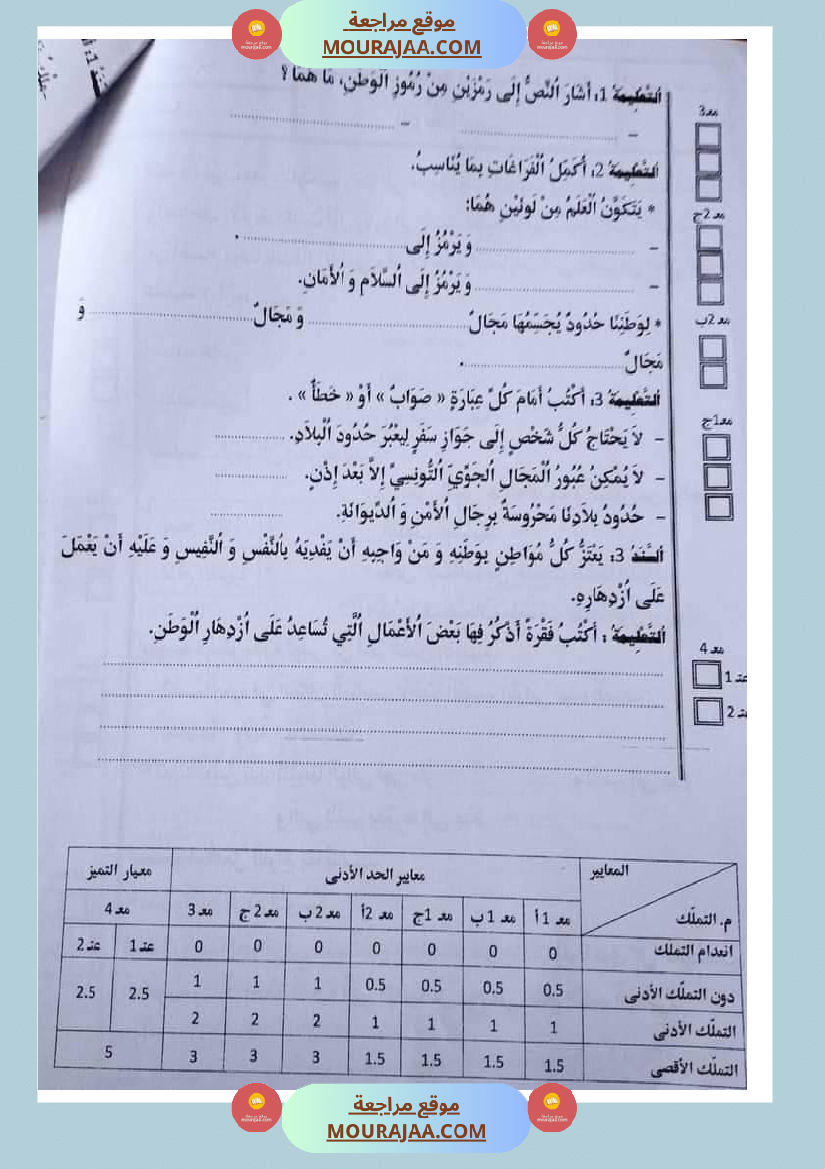 موقع مراجعة
MOURAJAA.COM
اَلتَّعْلِيمَةُ 1: أَشَارَ اُلنَّصُّ إِلَى رَمْزَيْنِ مِنْ رُمُوزِ اُلْوَطَنِ، مَا هُمَا ؟
- ........................ - ........................
اَلتَّعْلِيمَةُ 2: أُكَمِّلُ اُلْفَرَاغَاتِ بِمَا يُنَاسِبُ.
* يَتَكَوَّنُ اُلْعَلَمُ مِنْ لَوْنَيْنِ هُمَا:
- ........................ وَ يَرْمُزُ إِلَى ........................ .
- ........................ وَ يَرْمُزُ إِلَى اُلسَّلاَمِ وَ اُلْأَمَانِ.
* لِوَطَنِنَا حُدُودٌ يُجَسِّمُهَا مَجَالٌ ........................ وَ مَجَالٌ ........................ وَ
مَجَالٌ ........................ .
اَلتَّعْلِيمَةُ 3: أَكْتُبُ أَمَامَ كُلِّ عِبَارَةٍ « صَوَابٌ » أَوْ « خَطَأٌ » .
- لاَ يَحْتَاجُ كُلُّ شَخْصٍ إِلَى جَوَازِ سَفَرٍ لِيَعْبُرَ حُدُودَ اُلْبِلاَدِ. ............
- لاَ يُمْكِنُ عُبُورُ اُلْمَجَالِ اُلجَوِّيِّ اُلتُّونِسِيِّ إِلاَّ بَعْدَ إِذْنٍ. ............
- حُدُودُ بِلاَدِنَا مَحْرُوسَةٌ بِرِجَالِ اُلأَمْنِ وَ اُلدِّيوَانَةِ. ............
اَلسَّنَدُ 3: يَعْتَزُّ كُلُّ مُوَاطِنٍ بِوَطَنِهِ وَ مَنْ وَاجِبِهِ أَنْ يَفْدِيَهُ بِاُلنَّفْسِ وَ اُلنَّفِيسِ وَ عَلَيْهِ أَنْ يَعْمَلَ
عَلَى اُزْدِهَارِهِ.
اَلتَّعْلِيمَةُ : أَكْتُبُ فَقْرَةً أَذْكُرُ فِهَا بَعْضَ اُلأَعْمَالِ اُلَّتِي تُسَاعِدُ عَلَى اُزْدِهَارِ اُلْوَطَنِ.
معـ3
معـ2ج
معـ2ب
معـ1ج
معـ 4
عنـ 1
عنـ 2
المعايير معايير الحد الأدنى معيار التميز
م. التملّك معـ 1أ معـ 1ب معـ 1ج معـ 2أ معـ 2ب معـ 2ج معـ 3 معـ 4
انعدام التملك 0 0 0 0 0 0 0 عنـ1 عنـ2
دون التملّك الأدنى 0.5 0.5 0.5 0.5 1 1 1 2.5 2.5
التملّك الأدنى 1 1 1 1 2 2 2
التملّك الأقصى 1.5 1.5 1.5 1.5 3 3 3 5
موقع مراجعة
MOURAJAA.COM